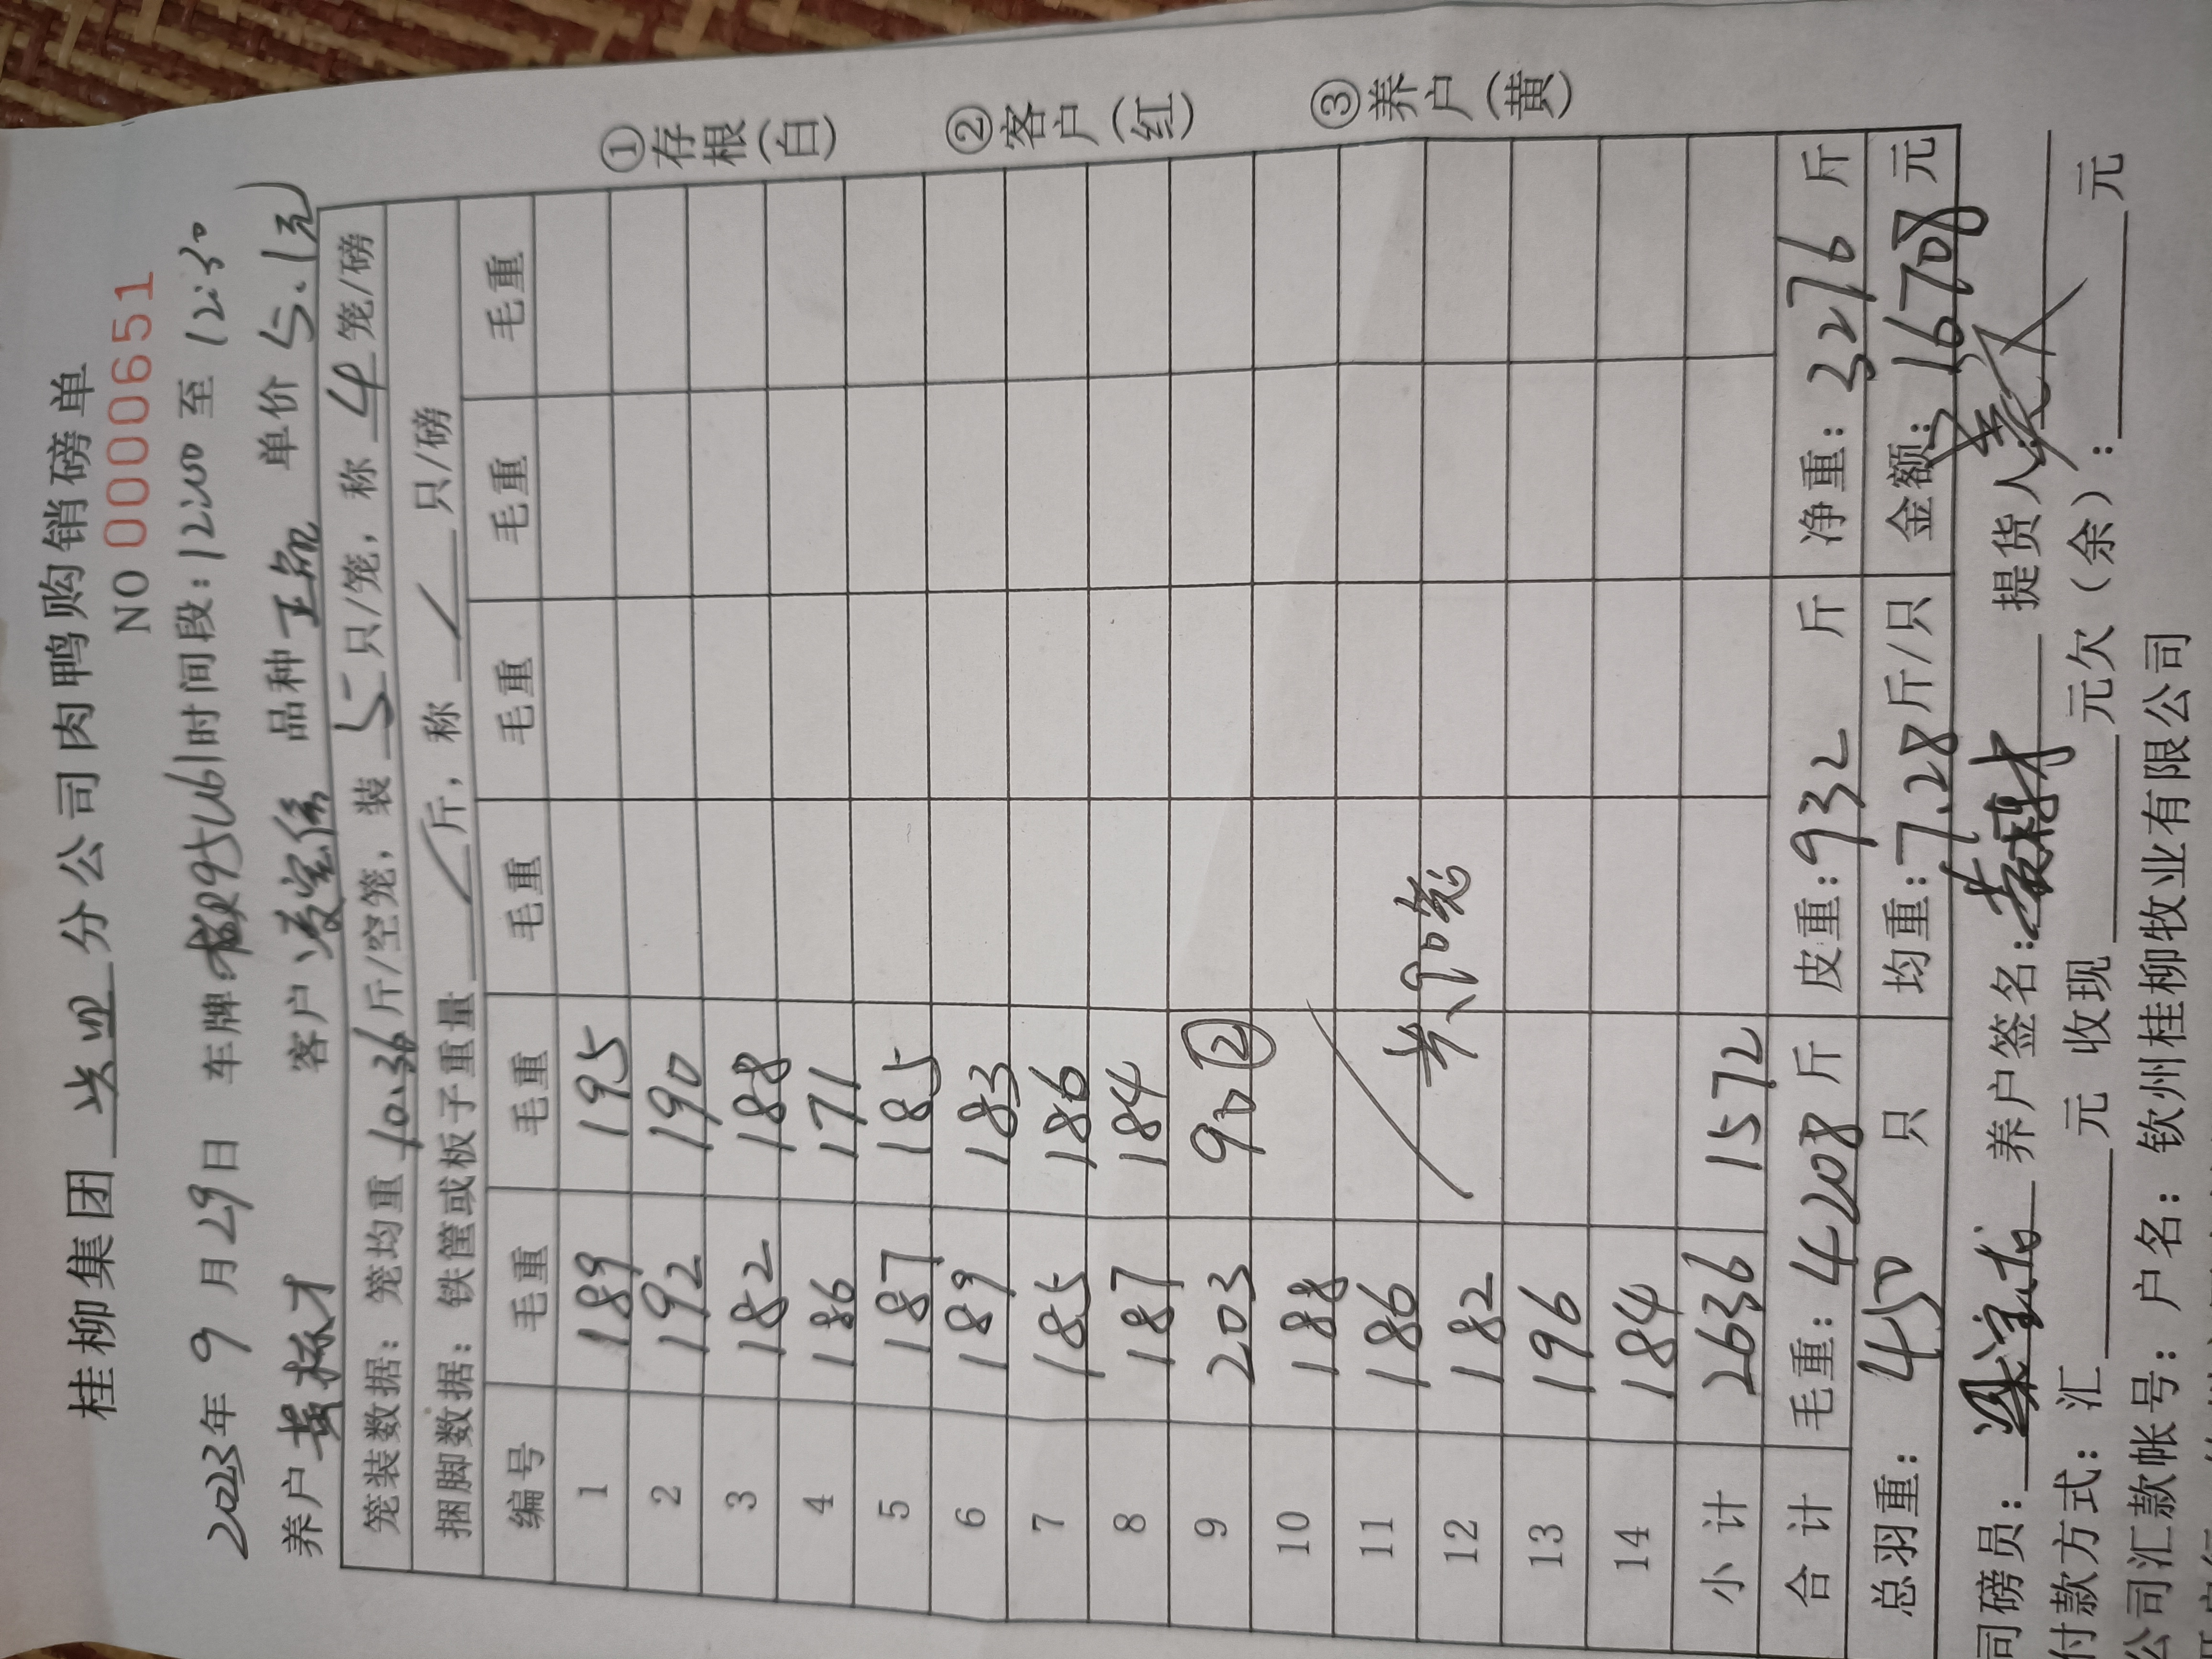 桂柳集团 分公司肉鸭购销磅单
NO 0000651
2023年 9 月 29 日 车牌: 时间段:12:00 至 12:30
养户 黄栋才 客户 品种 单价 5.1元
笼装数据: 笼均重 10.36 斤/空笼, 装 5 只/笼, 称 4 笼/磅
捆脚数据: 铁筐或板子重量 / 斤, 称 / 只/磅
编号 毛重 毛重 毛重 毛重 毛重 毛重
1 189 195
2 192 190
3 182 188
4 186 171
5 187 185
6 189 183
7 185 186
8 187 184
9 203 90 ②
10 188
11 186
12 182
13 196
14 184
小计 2636 1572
合计 毛重: 4208 斤 皮重: 932 斤 净重: 3276 斤
总羽重: 450 只 均重: 7.28 斤/只 金额: 16708 元
司磅员: 养户签名: 提货人:
付款方式: 汇 元 收现 元欠(余): 元
公司汇款帐号: 户名: 钦州桂柳牧业有限公司
①存根(白) ②客户(红) ③养户(黄)